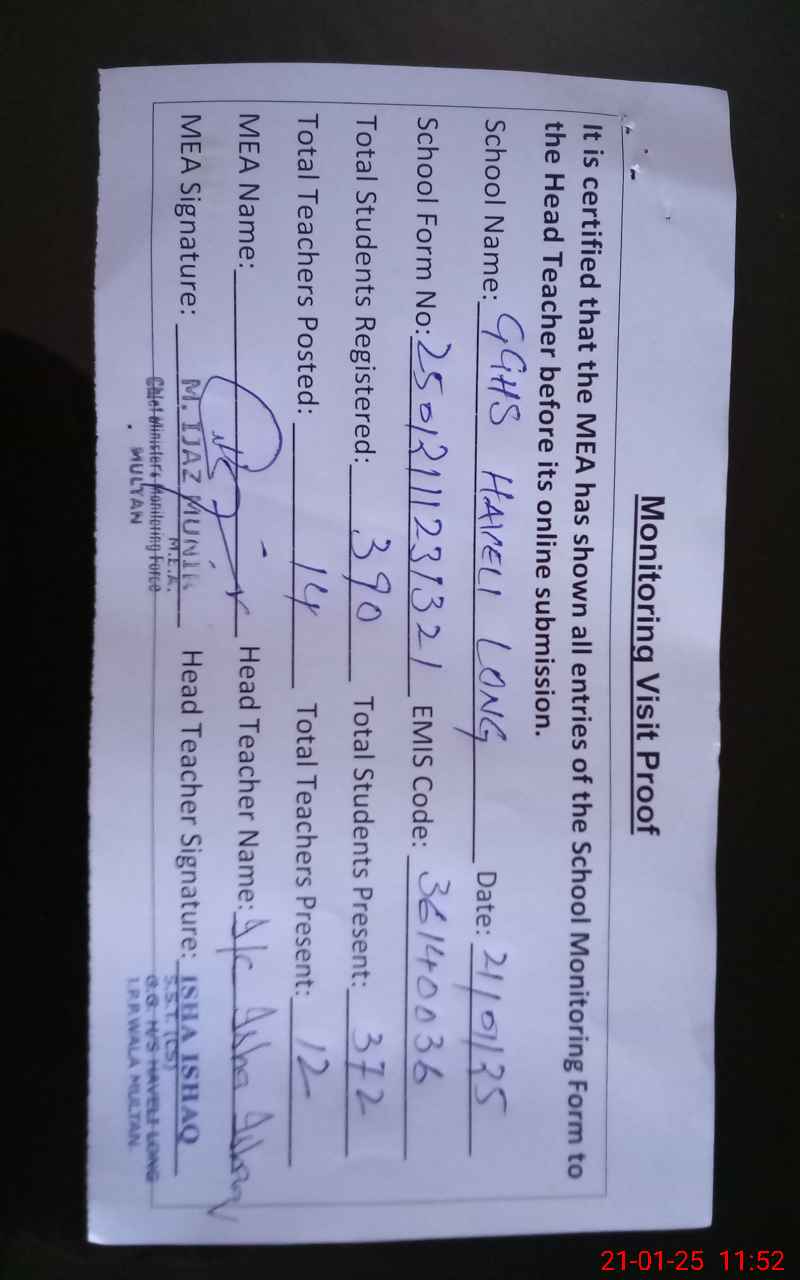 Monitoring Visit Proof
It is certified that the MEA has shown all entries of the School Monitoring Form to
the Head Teacher before its online submission.
School Name: GGHS HAVELI LONG Date: 21/01/25
School Form No: 25012111231321 EMIS Code: 36140036
Total Students Registered: 390 Total Students Present: 372
Total Teachers Posted: 14 Total Teachers Present: 12
MEA Name: Head Teacher Name: I/C Isha Ishaq
MEA Signature: M. IJAZ MUNIR Head Teacher Signature: ISHA ISHAQ
M.E.A. S.S.T. (CS)
Chief Ministers Monitoring Force G.G. H/S HAVELI LONG
MULTAN 1.P.P. WALA MULTAN.
21-01-25 11:52